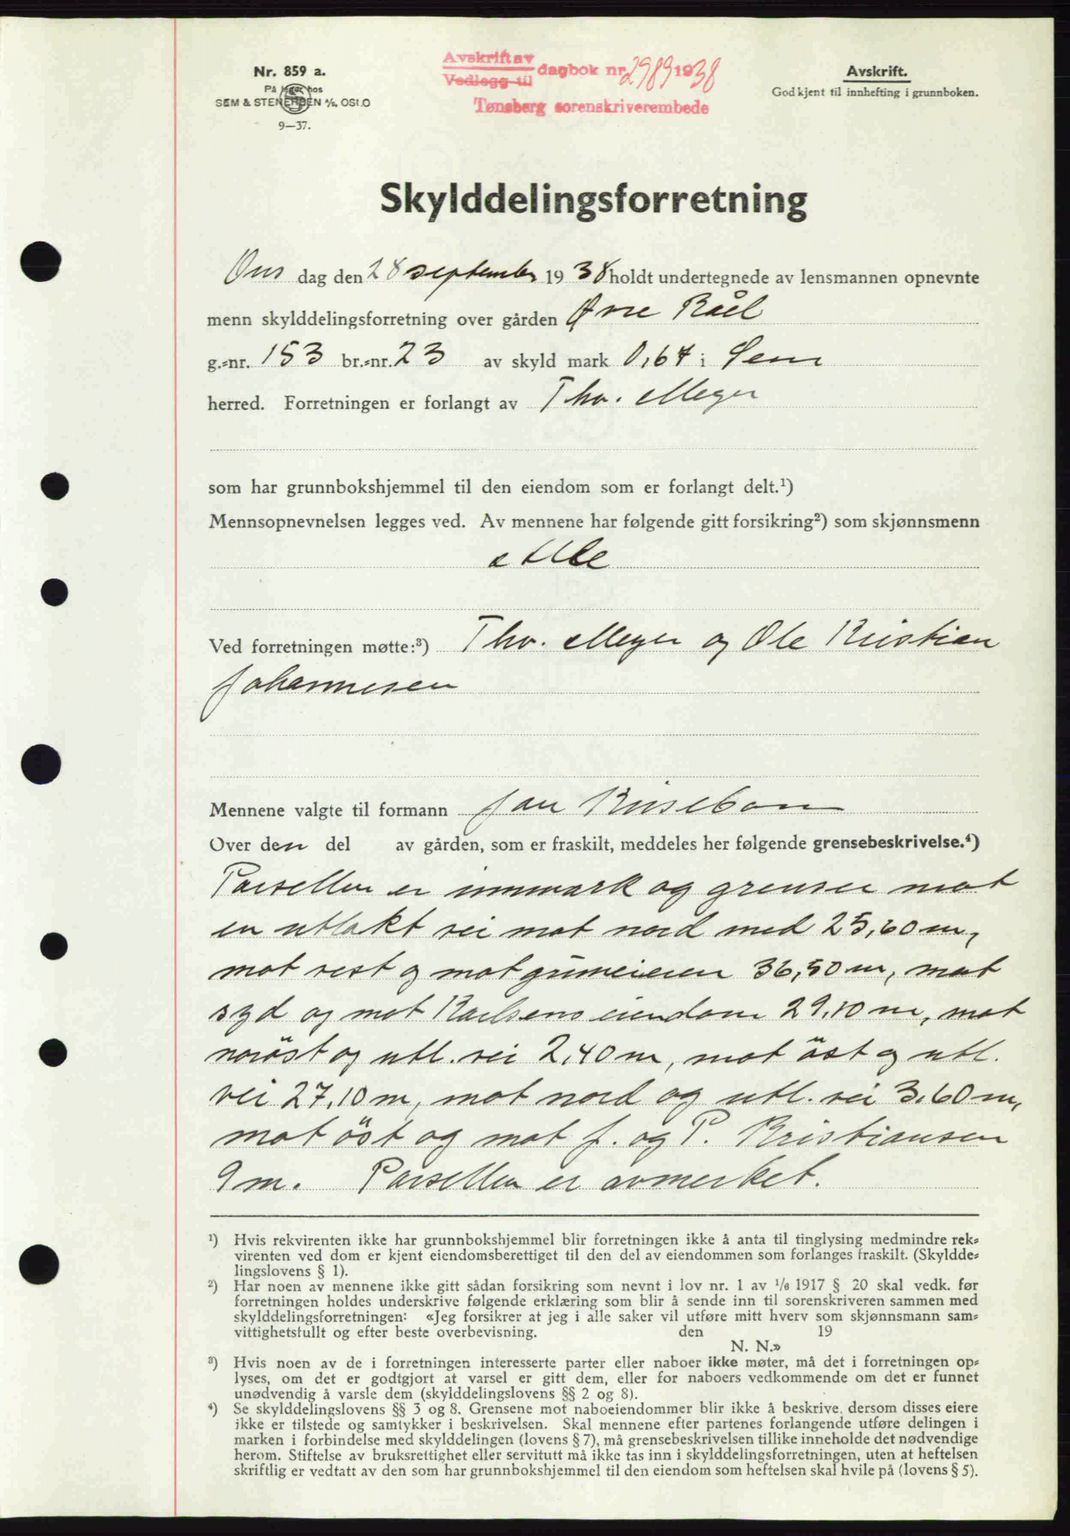 Nr. 859 a.
På lager hos
SEM & STENERSEN A/S, OSLO
9—37.
Avskrift av
Vedlegg til dagbok nr. 2989 1938
Tønsberg sorenskriverembede
Avskrift.
Godkjent til innhefting i grunnboken.
Skylddelingsforretning
Ons dag den 28 september 19 38 holdt undertegnede av lensmannen opnevnte
menn skylddelingsforretning over gården Øvre Råel
g.-nr. 153 br.-nr. 23 av skyld mark 0,67 i Sem
herred. Forretningen er forlangt av Thv. Meyer
som har grunnbokshjemmel til den eiendom som er forlangt delt.¹)
Mennsopnevnelsen legges ved. Av mennene har følgende gitt forsikring²) som skjønnsmenn
Alle
Ved forretningen møtte:³) Thv. Meyer og Ole Kristian
Johannesen
Mennene valgte til formann Jan
Over den del av gården, som er fraskilt, meddeles her følgende grensebeskrivelse.⁴)
Parsellen er innmark og grenser mot
en utlakt vei mot nord med 25,60 m,
mot vest og mot 36,50 m, mot
syd og mot Karlsens eiendom 29,10 m, mot
noröst og utl. vei 2,40 m, mot öst og utl.
vei 27,10 m, mot nord og utl. vei 3,60 m,
mot öst og mot J. og P. Kristiansen
9 m. Parsellen er avmerket.
¹) Hvis rekvirenten ikke har grunnbokshjemmel blir forretningen ikke å anta til tinglysing medmindre rek-
virenten ved dom er kjent eiendomsberettiget til den del av eiendommen som forlanges fraskilt. (Skyldde-
lingslovens § 1).
²) Har noen av mennene ikke gitt sådan forsikring som nevnt i lov nr. 1 av 1/6 1917 § 20 skal vedk. før
forretningen holdes underskrive følgende erklæring som blir å sende inn til sorenskriveren sammen med
skylddelingsforretningen: «Jeg forsikrer at jeg i alle saker vil utføre mitt hverv som skjønnsmann sam-
vittighetsfullt og efter beste overbevisning. den 19
N. N.»
³) Hvis noen av de i forretningen interesserte parter eller naboer ikke møter, må det i forretningen op-
lyses, om det er godtgjort at varsel er gitt dem, eller for naboers vedkommende om det er funnet
unødvendig å varsle dem (skylddelingslovens §§ 2 og 8).
⁴) Se skylddelingslovens §§ 3 og 8. Grensene mot naboeiendommer blir ikke å beskrive, dersom disses eiere
ikke er tilstede og samtykker i beskrivelsen. Skal mennene efter partenes forlangende utføre delingen i
marken i forbindelse med skylddelingen (lovens § 7), må grensebeskrivelsen tillike inneholde det nødvendige
herom. Stiftelse av bruksrettighet eller servitutt må ikke tas inn i skylddelingsforretningen, uten at heftelsen
skriftlig er vedtatt av den som har grunnbokshjemmel til den eiendom som heftelsen skal hvile på (lovens § 5).